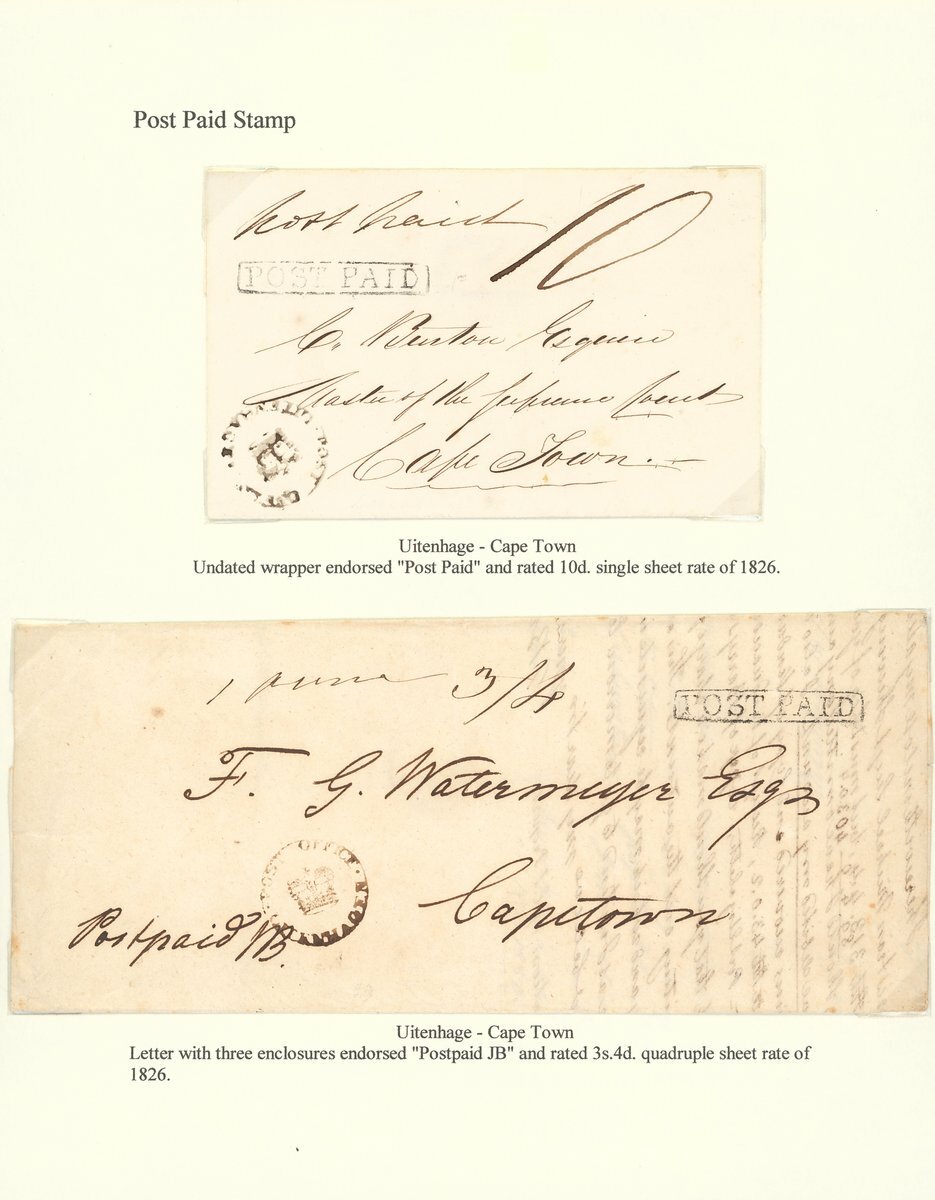 Post Paid Stamp
Post Paid 10
POST PAID
C. Burton Esquire
Master of the Supreme Court
Cape Town.
UITENHAGE. POST OFFICE
Uitenhage - Cape Town
Undated wrapper endorsed "Post Paid" and rated 10d. single sheet rate of 1826.
3/4
POST PAID
F. G. Watermeyer Esqr
POST OFFICE. UITENHAGEN
Capetown
Postpaid JB.
Uitenhage - Cape Town
Letter with three enclosures endorsed "Postpaid JB" and rated 3s.4d. quadruple sheet rate of
1826.